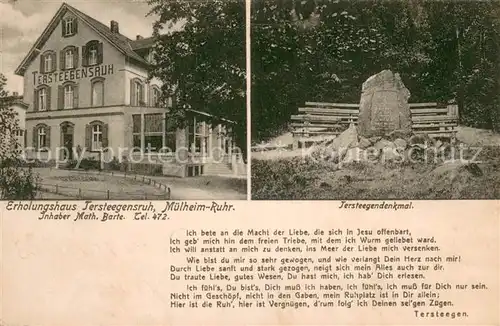 TERSTEEGENSRUH
Erholungshaus Tersteegensruh, Mülheim-Ruhr.
Inhaber Math. Barte. Tel. 472.
Tersteegendenkmal.
Ich bete an die Macht der Liebe, die sich in Jesu offenbart,
Ich geb' mich hin dem freien Triebe, mit dem ich Wurm geliebet ward.
Ich will anstatt an mich zu denken, ins Meer der Liebe mich versenken.
Wie bist du mir so sehr gewogen, und wie verlangt Dein Herz nach mir!
Durch Liebe sanft und stark gezogen, neigt sich mein Alles auch zur dir.
Du traute Liebe, gutes Wesen, Du hast mich, ich hab' Dich erlesen.
Ich fühl's, Du bist's, Dich muß ich haben, ich fühl's, ich muß für Dich nur sein.
Nicht im Geschöpf, nicht in den Gaben, mein Ruhplatz ist in Dir allein;
Hier ist die Ruh', hier ist Vergnügen, d'rum folg' ich Deinen sel'gen Zügen.
Tersteegen.